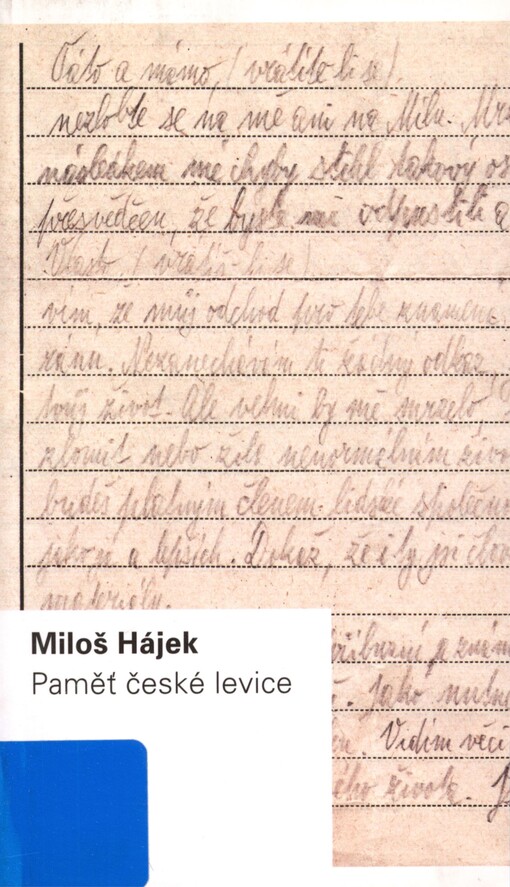 Táto a mámo, (vrátíte-li se).
nezlobte se na mě ani na Milu.
následkem mé chyby stihl takový
přesvědčen, že byste mi odpustili a
Vlasto (vrátíš-li se)
vím, že můj odchod pro tebe znamená
ránu. Nezanechávám ti žádný odkaz,
tvůj život. Ale velmi by mě mrzelo,
zlomit nebo žila nenormálním
budeš platným členem lidské
jako já a lepších. Dokaž, že i ty jsi
materiálu.
příbuzní a
. Jako nutné
. Vidím věci
ého života.
Miloš Hájek
Paměť české levice